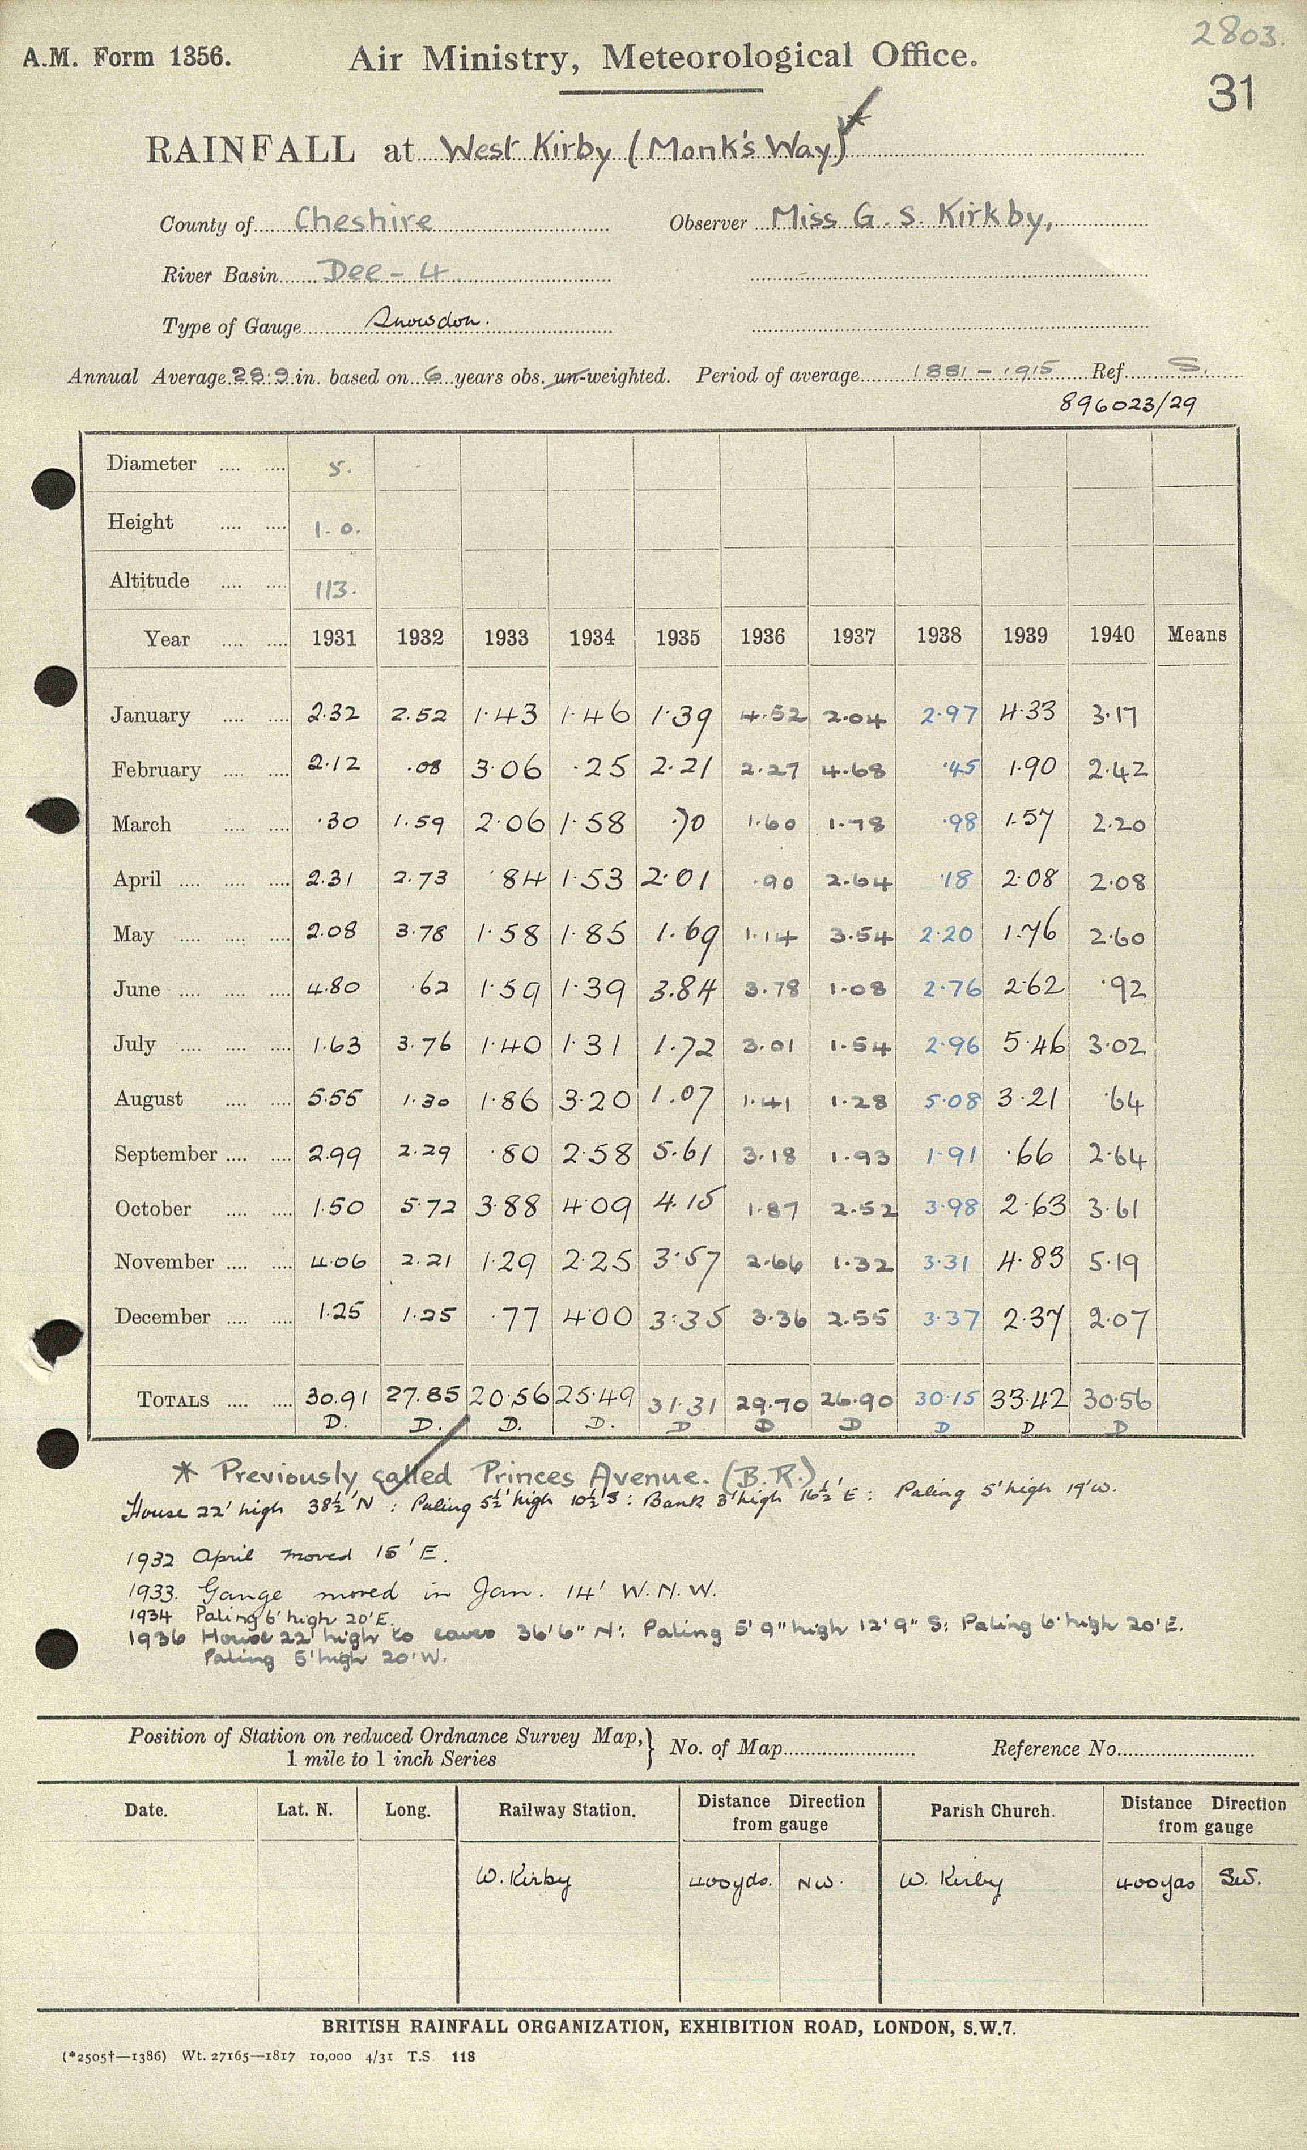 2803.
A.M. Form 1356. Air Ministry, Meteorological Office.
31
RAINFALL at West Kirby (Monk's Way) *
County of Cheshire Observer Miss G. S. Kirkby,
River Basin Dee - 4
Type of Gauge Snowdon.
Annual Average 28.9 in. based on 6 years obs. un-weighted. Period of average 1881 - 1915 Ref S.
896023/29
Diameter 5.
Height 1.0.
Altitude 113.
Year 1931 1932 1933 1934 1935 1936 1937 1938 1939 1940 Means
January 2.32 2.52 1.43 1.46 1.39 4.52 2.04 2.97 4.33 3.17
February 2.12 .08 3.06 .25 2.21 2.27 4.68 .45 1.90 2.42
March .30 1.59 2.06 1.58 .70 1.60 1.78 .98 1.57 2.20
April 2.31 2.73 .84 1.53 2.01 .90 2.64 .18 2.08 2.08
May 2.08 3.78 1.58 1.85 1.69 1.14 3.54 2.20 1.76 2.60
June 4.80 .62 1.59 1.39 3.84 3.78 1.08 2.76 2.62 .92
July 1.63 3.76 1.40 1.31 1.72 3.01 1.54 2.96 5.46 3.02
August 5.55 1.30 1.86 3.20 1.07 1.41 1.28 5.08 3.21 .64
September 2.99 2.29 .80 2.58 5.61 3.18 1.93 1.91 .66 2.64
October 1.50 5.72 3.88 4.09 4.15 1.87 2.52 3.98 2.63 3.61
November 4.06 2.21 1.29 2.25 3.57 2.66 1.32 3.31 4.83 5.19
December 1.25 1.25 .77 4.00 3.35 3.36 2.55 3.37 2.37 2.07
TOTALS 30.91 27.85 20.56 25.49 31.31 29.70 26.90 30.15 33.42 30.56
D. D. D. D. D D D D D D
* Previously called Princes Avenue. (B.R.)
House 22' high 38½' N : Paling 5½' high 10½' S : Bank 3' high 16½' E : Paling 5' high 19' W.
1932 April moved 15' E.
1933. Gauge moved in Jan. 14' W.N.W.
1934 Paling 6' high 20' E.
1936 House 22' high to eaves 36'6" N: Paling 5'9" high 12'9" S: Paling 6' high 20' E.
Paling 5' high 20' W.
Position of Station on reduced Ordnance Survey Map, 1 mile to 1 inch Series } No. of Map Reference No.
Date. Lat. N. Long. Railway Station. Distance Direction from gauge Parish Church. Distance Direction from gauge
W. Kirby 400 yds. NW. W. Kirby 400 yds SW.
BRITISH RAINFALL ORGANIZATION, EXHIBITION ROAD, LONDON, S.W.7.
(*2505†—1386) Wt. 27165—1817 10,000 4/31 T.S. 118